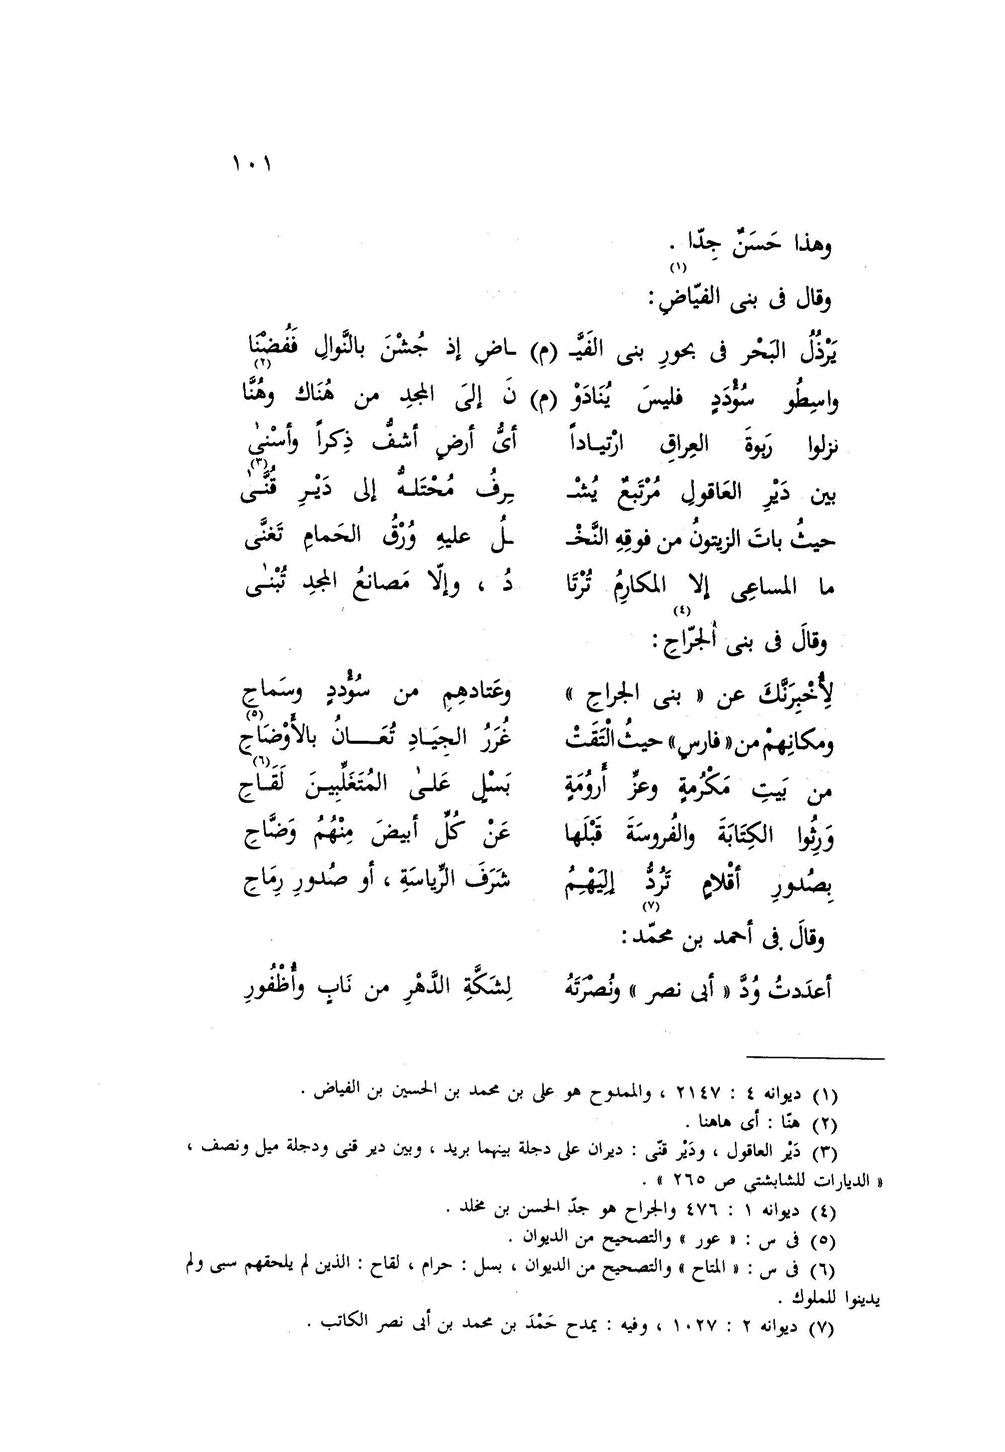 ١٠١
وهذا حَسَنٌ جِدّا .
وقال فى بنى الفيّاضِ(١):
يَرْذُلُ البَحْر فى بحورِ بنى الفَيَّـ (م) ـاضِ إذ جُشْنَ بالنَّوالِ فَفُضْنَا
واسِطُو سُؤْدَدٍ فليسَ يُنَادَوْ (م) نَ إلىَ المجدِ من هُنَاك وهُنَّا(٢)
نزلوا رَبوةَ العِراقِ ارْتيـاداً أىُّ أرضٍ أشفُّ ذِكراً وأسْنىٰ
بين دَيْرِ العَاقولِ مُرْتَبعٌ يُشْـ ـرِفُ مُحْتَلـهُ إلى دَيْـرِ قُنَّـىٰ(٣)
حيثُ باتَ الزيتونُ من فوقِهِ النَّخْـ ـلُ عليهِ وُرْقُ الحَمامِ تَغنَّى
ما المساعِى إلا المكارِمُ تُرْتَا دُ ، وإلّا مَصانعُ المجدِ تُبْنـٰى
وقالَ فى بنى الجرّاحِ(٤):
لِأُخْبِرَنَّكَ عن « بنى الجراحِ » وعَتادهِمِ من سُؤْددٍ وسَماحِ
ومكانِهمْ من « فارسٍ » حيثُ الْتَقَتْ غُرَرُ الجِيَادِ تُعَـــانُ بالأَوْضَاْحِ(٥)
من بَيتِ مَكْرُمةٍ وعزِّ أَرُومَةٍ بَسْلٍ عَلىٰ المُتَغَلِّبِيـنَ لَقَـاحِ(٦)
وَرِثُوا الكِتَابَةَ والفُروسَةَ قَبْلَها عَنْ كُلِّ أبيضَ مِنْهُمُ وَضَّاحِ
بِصُدورِ أقْلامٍ تَرُدُّ إلَيْهِـمُ شَرَفَ الرِّياسَةِ ، أو صُدورِ رِماحِ
وقالَ فى أحمد بن محمّد(٧):
أعدَدتُ وُدَّ « أبى نصر » ونُصْرَتَهُ لِشَكَّةِ الدَّهْرِ من نَابٍ وأُظْفُورِ
(١) ديوانه ٤ : ٢١٤٧ ، والممدوح هو على بن محمد بن الحسين بن الفياض .
(٢) هنّا : أى هاهنا .
(٣) دَيْر العاقول ، ودَيْر قنّى : ديران على دجلة بينهما بريد ، وبين دير قنى ودجلة ميل ونصف ،
« الديارات للشابشتى ص ٢٦٥ » .
(٤) ديوانه ١ : ٤٧٦ والجراح هو جدّ الحسن بن مخلد .
(٥) فى س : « عور » والتصحيح من الديوان .
(٦) فى س : « المتاح » والتصحيح من الديوان ، بسل : حرام ، لقاح : الذين لم يلحقهم سبى ولم
يدينوا للملوك .
(٧) ديوانه ٢ : ١٠٢٧ ، وفيه : يمدح حَمْدَ بن محمد بن أبى نصر الكاتب .